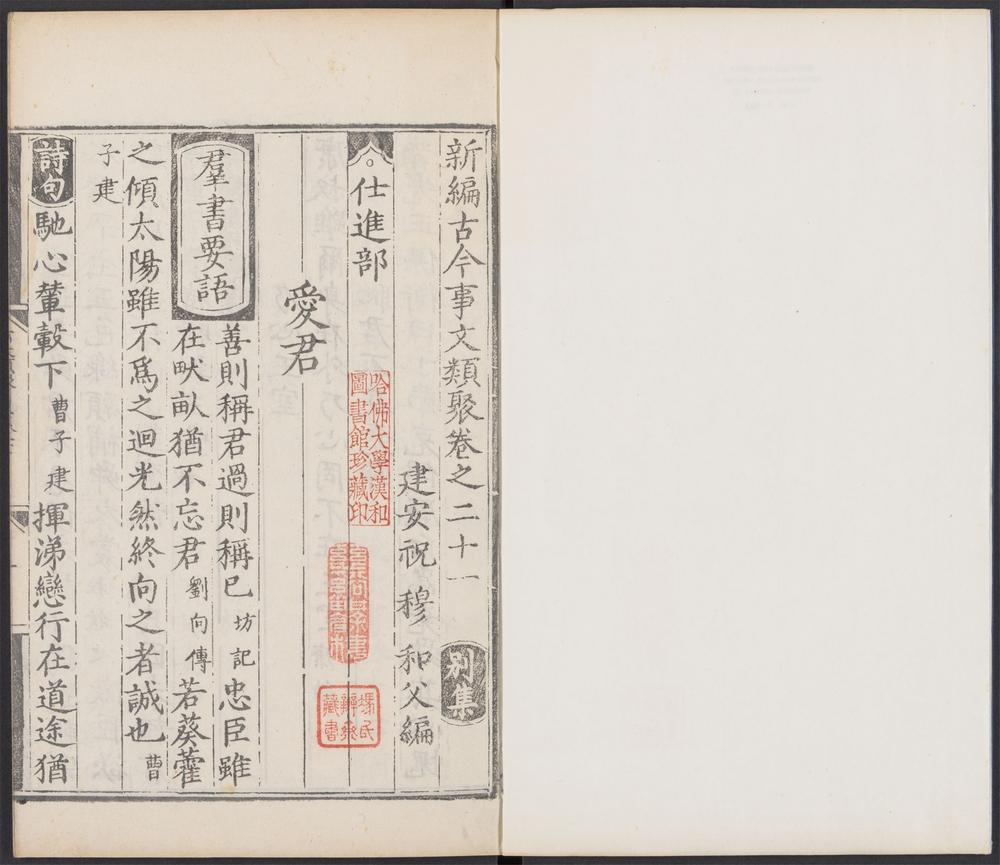 新編古今事文類聚卷之二十一 別集
建安祝 穆 和父編
仕進部
哈佛大學漢和
圖書館珍藏印
愛君
羣書要語
善則稱君過則稱已坊記忠臣雖
在畎畝猶不忘君劉向傳若葵藿
之傾太陽雖不爲之迴光然終向之者誠也曹
子建
詩句馳心輦轂下曹子建揮涕戀行在道途猶